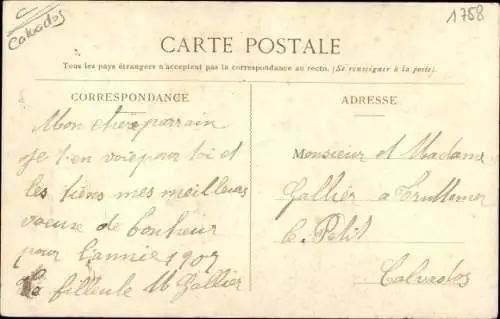 Calvados
1758
CARTE POSTALE
Tous les pays étrangers n'acceptent pas la correspondance au recto. (Se renseigner à la poste).
CORRESPONDANCE
Mon cher parrain
Je t'en voie pour toi et
les tiens mes meilleurs
voeux de bonheur
pour l'annie 1907
ta filleule M Gallier
ADRESSE
Monsieur et Madame
Gallier a Truttemer
le Petit
Calvados